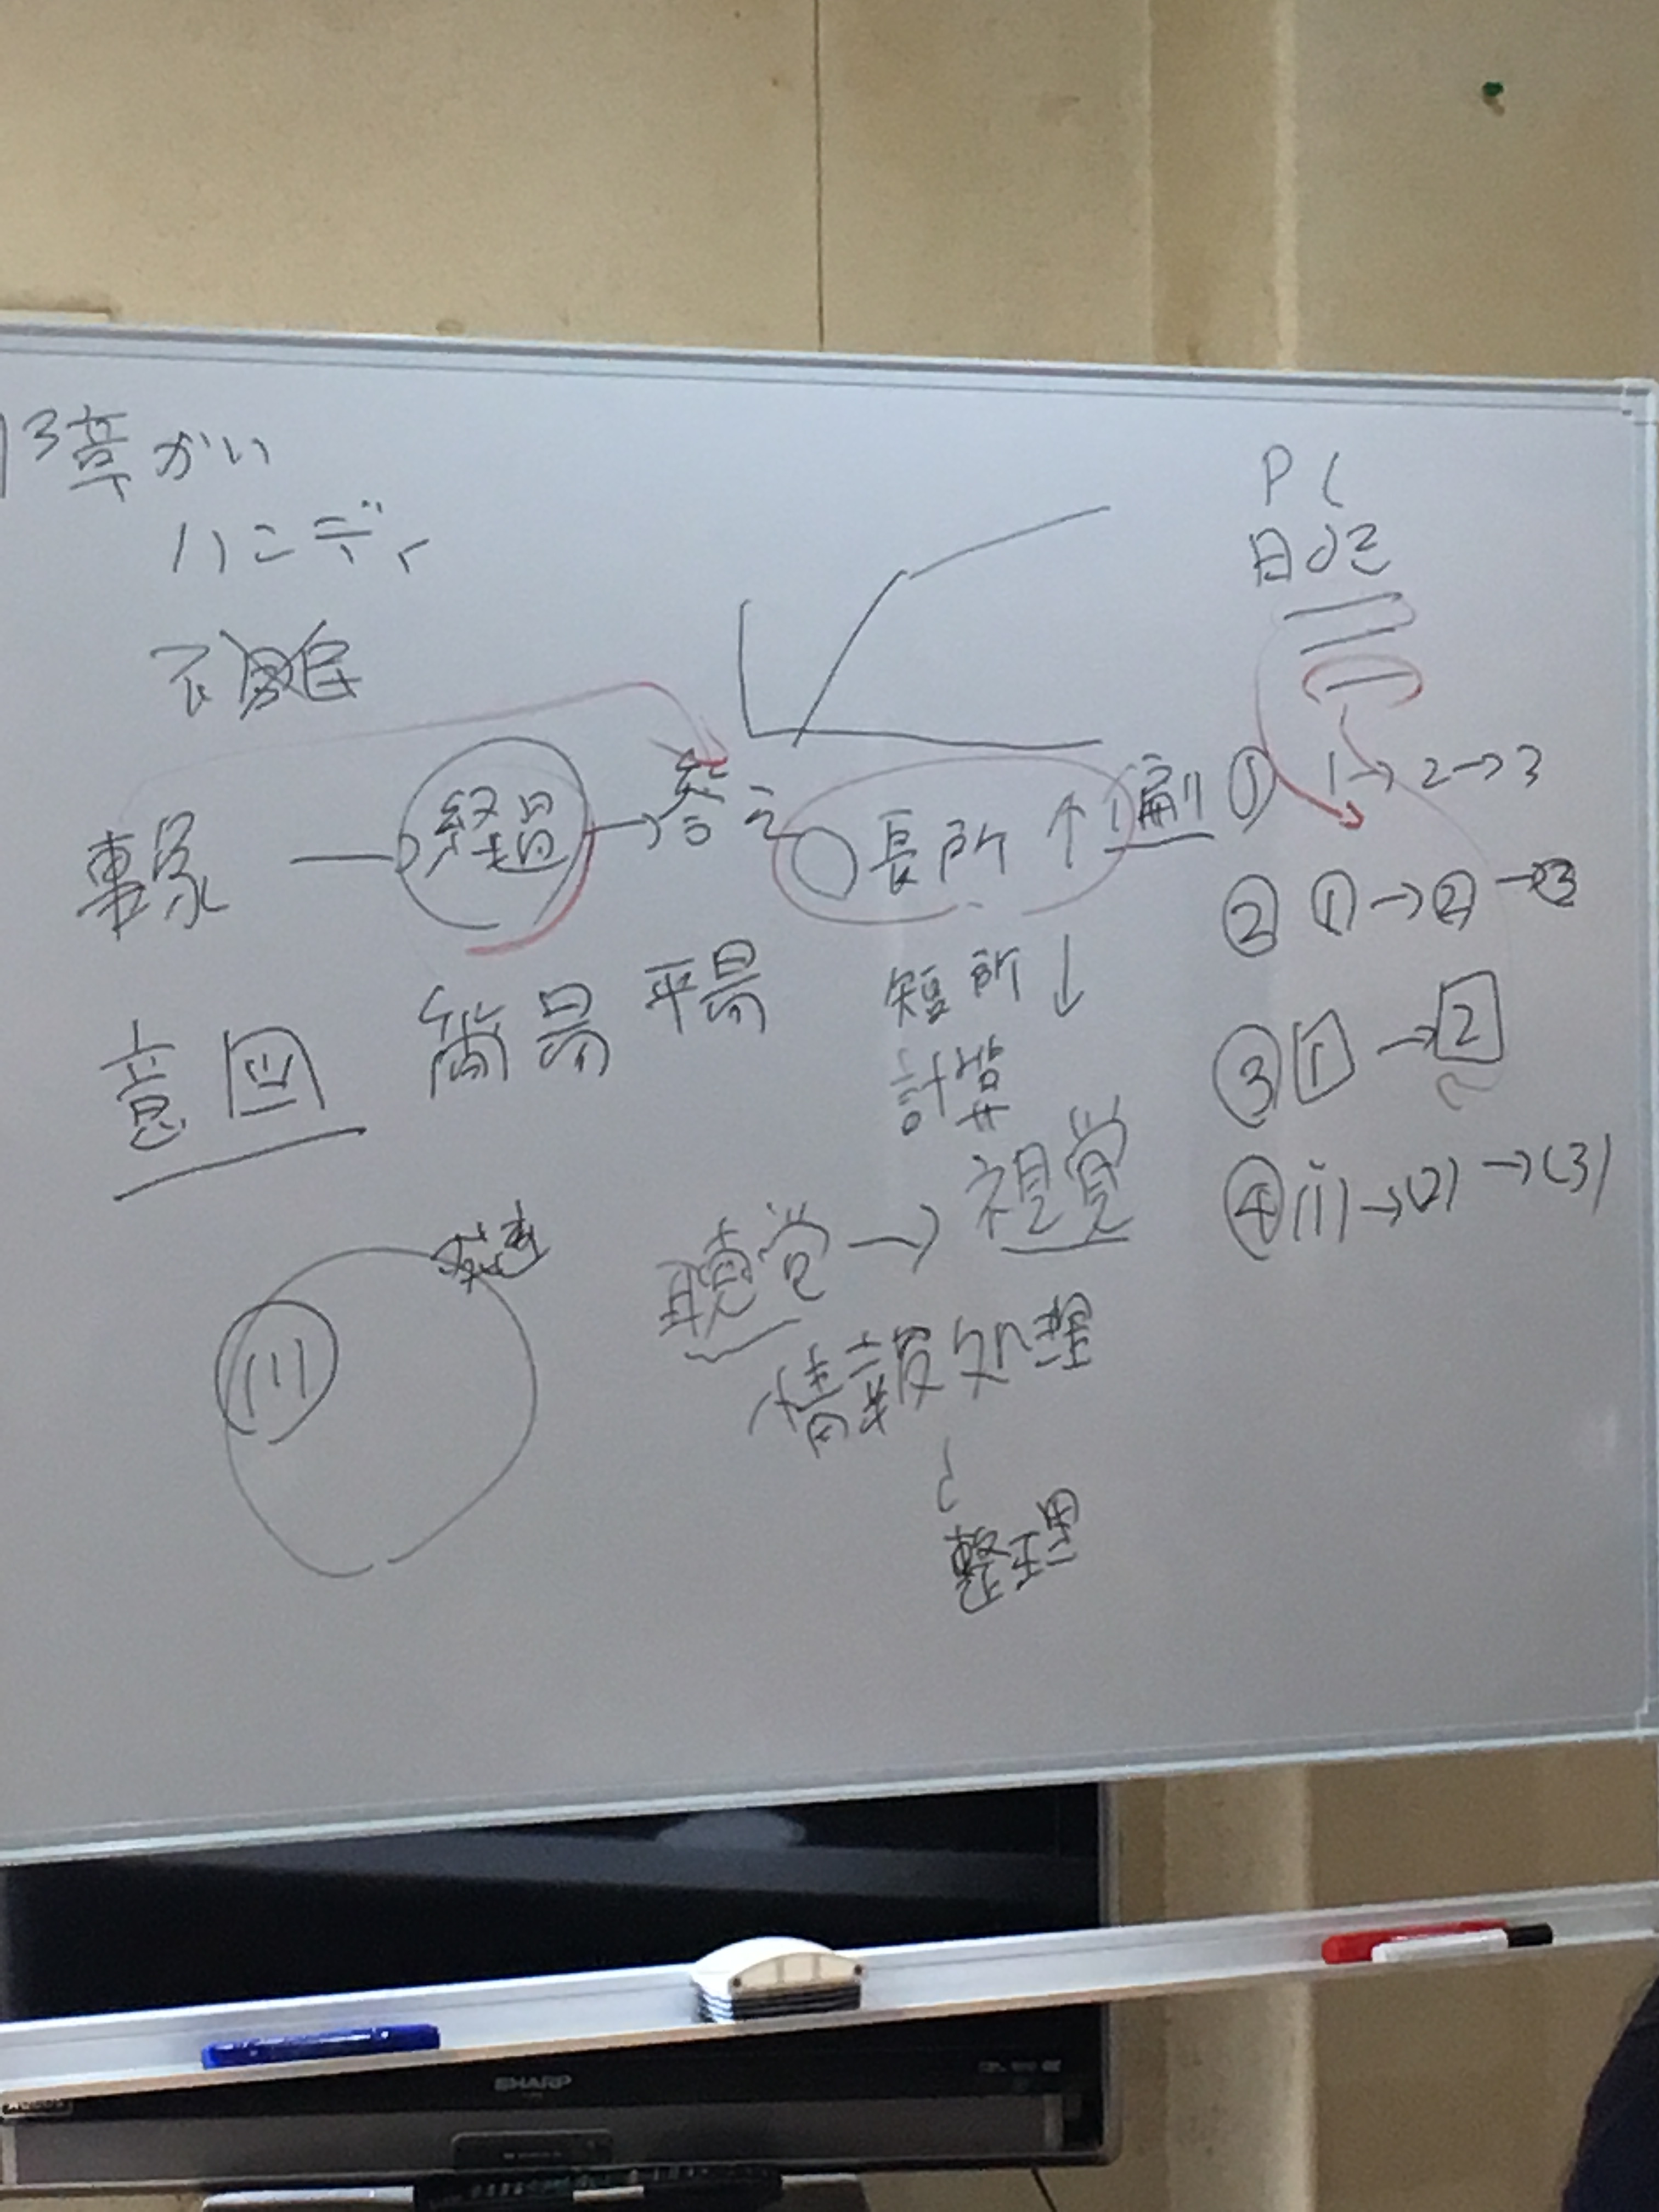 13章がい
ハンディ
PC
日記
事象 → 経過 → 答え
長所 ↑
① 1→2→3
② ①→②→3
短所 ↓
意図 簡易 平易
計算
③ 1→2
聴覚 → 視覚
④ (1)→(2)→(3)
(1)
情報処理
整理
SHARP